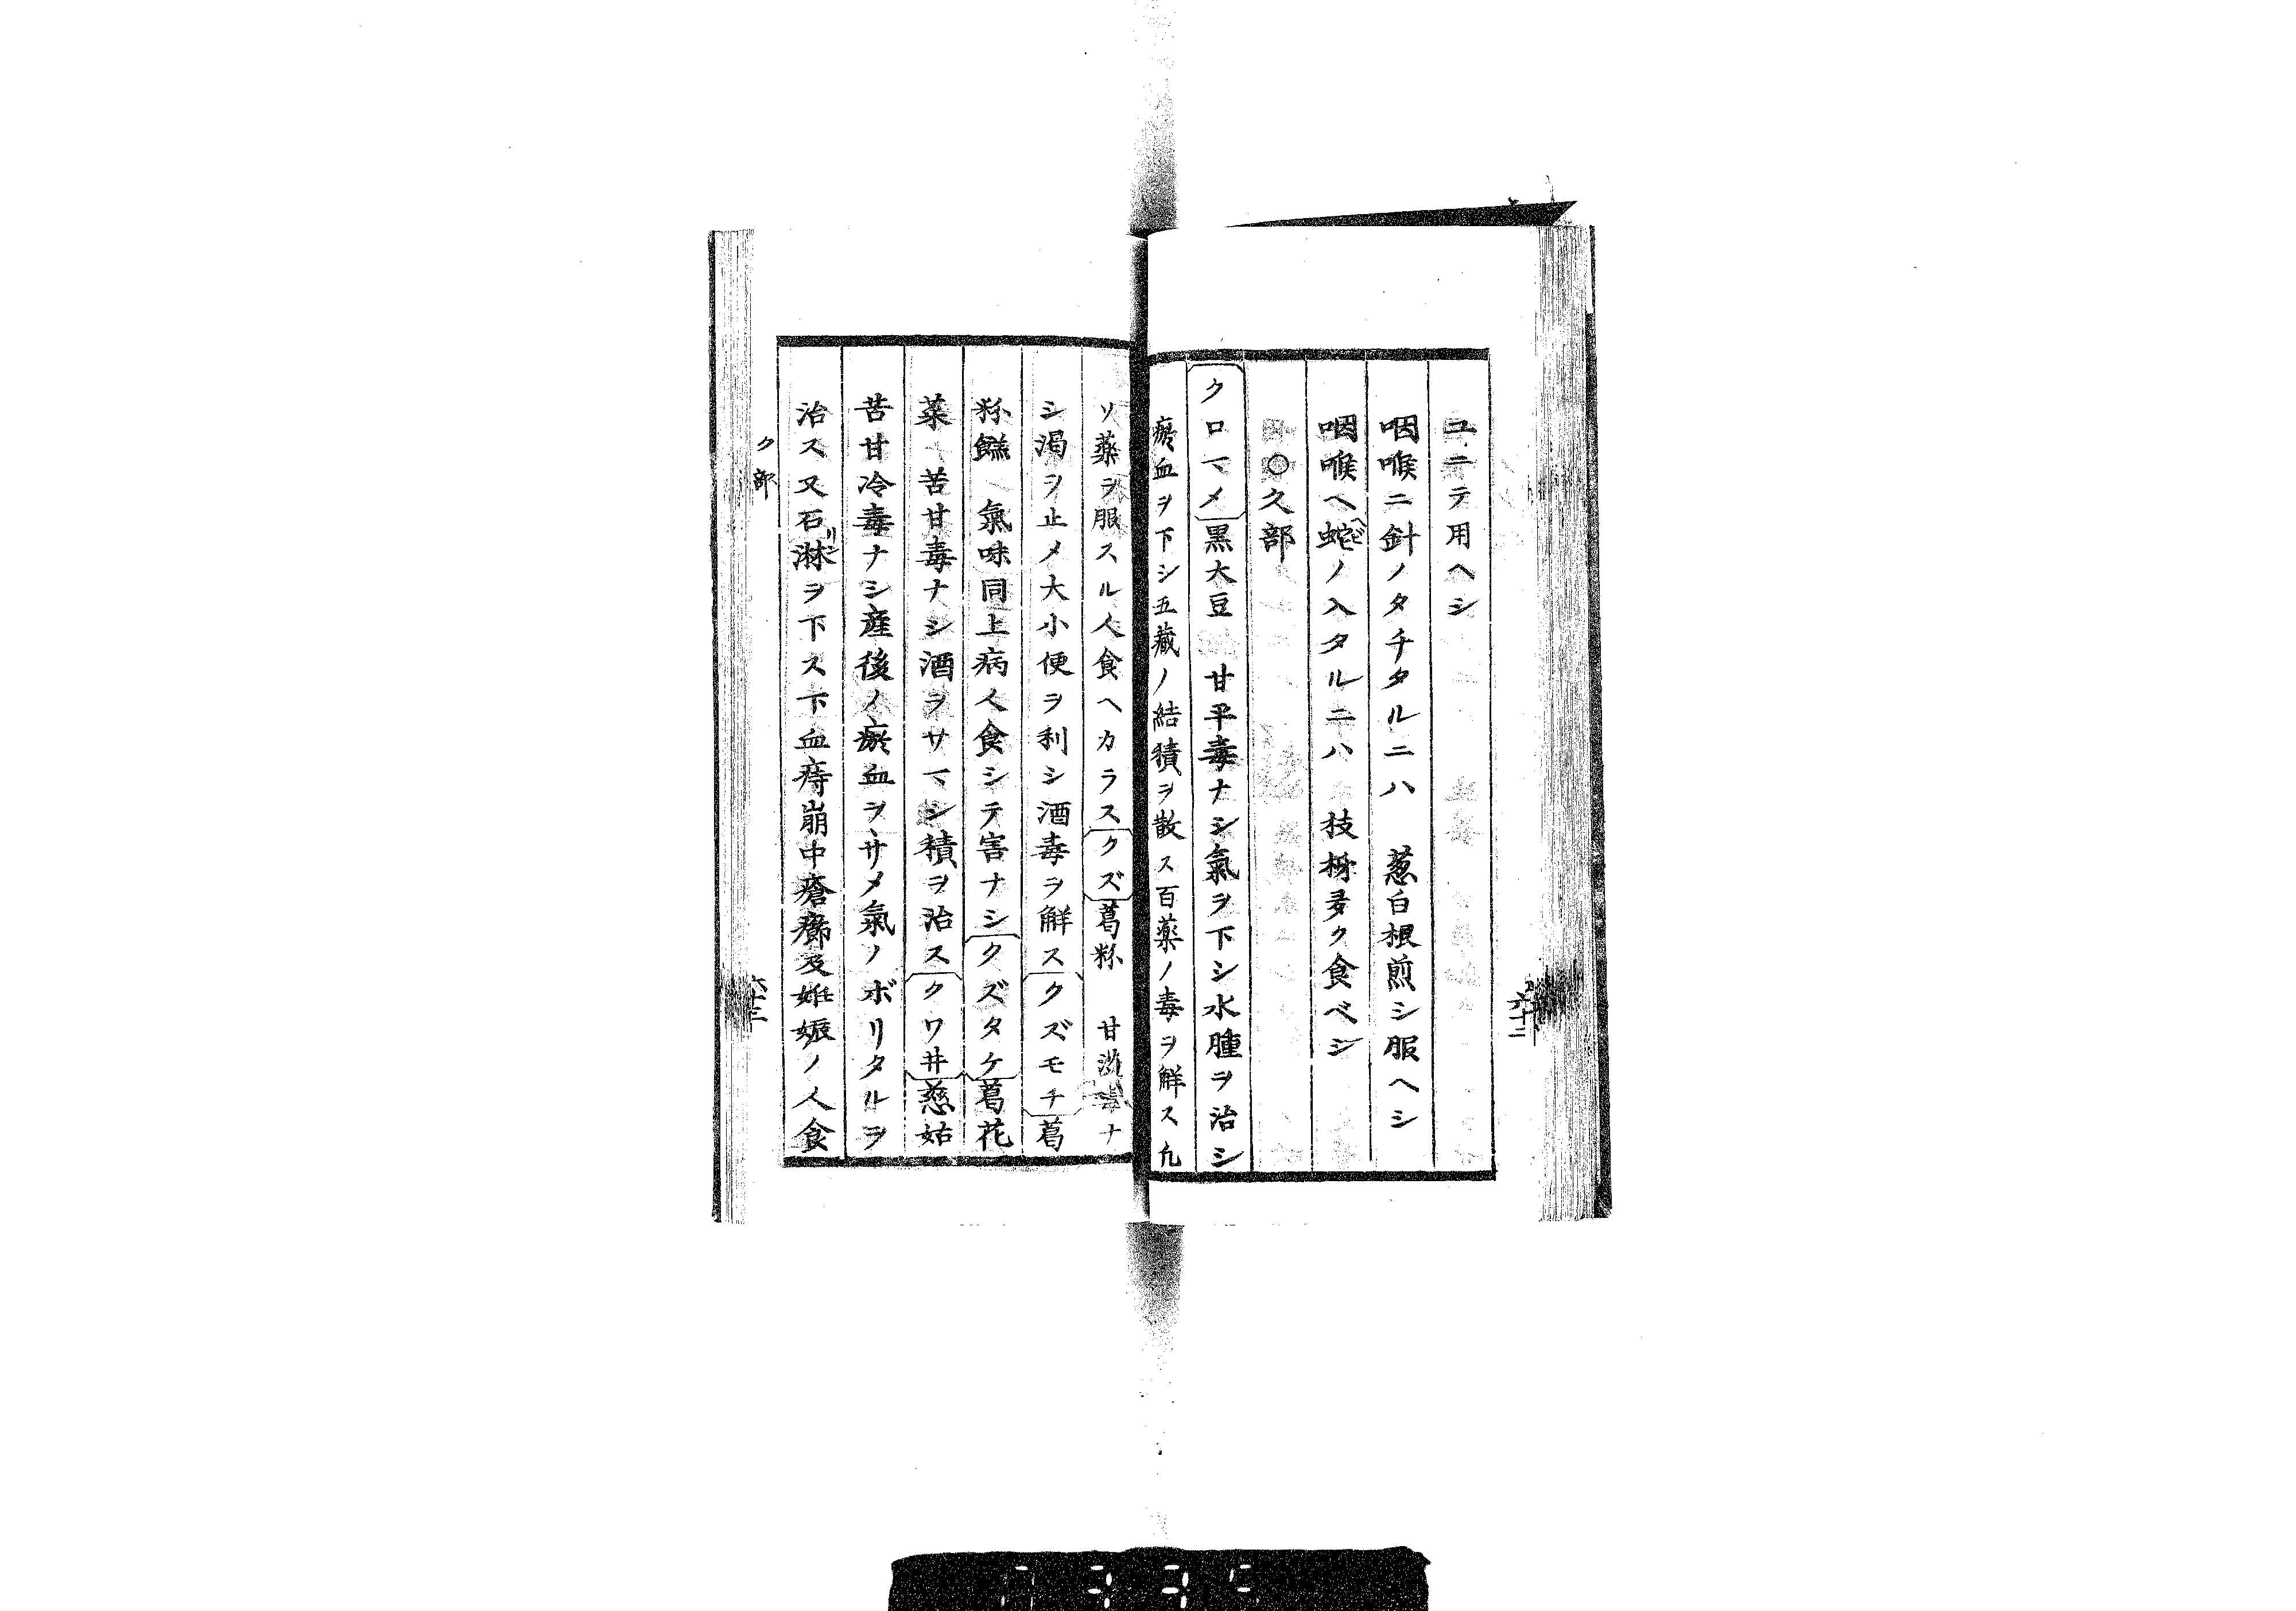 ユニテ用ヘシ
咽喉ニ針ノタチタルニハ　葱白根煎シ服ヘシ
咽喉ヘ蛇ヘビノ入タルニハ　枝柳多ク食ベシ
○久部
クロマメ黒大豆　甘平毒ナシ氣ヲ下シ水腫ヲ治シ
瘀血ヲ下シ五藏ノ結積ヲ散ス百薬ノ毒ヲ解ス凢
ソ薬ヲ服スル人食ヘカラスクズ葛粉　甘　毒ナ
シ渇ヲ止メ大小便ヲ利シ酒毒ヲ解スクズモチ葛
粉餻　氣味同上病人食シテ害ナシクズタケ葛花
菜　苦甘毒ナシ酒ヲサマシ積ヲ治スクワ井慈姑
苦甘冷毒ナシ産後ノ瘀血ヲサメ氣ノボリタルヲ
治ス又石淋リンヲ下ス下血痔崩中瘡癤及姙娠ノ人食
ク部
六十三
六十二